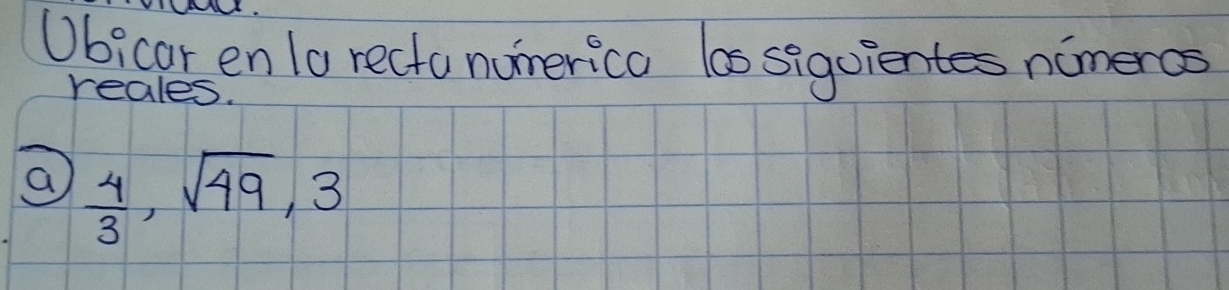 Ubicar en la recta númerica los siguientes números
reales.
a) 4/3, √49, 3